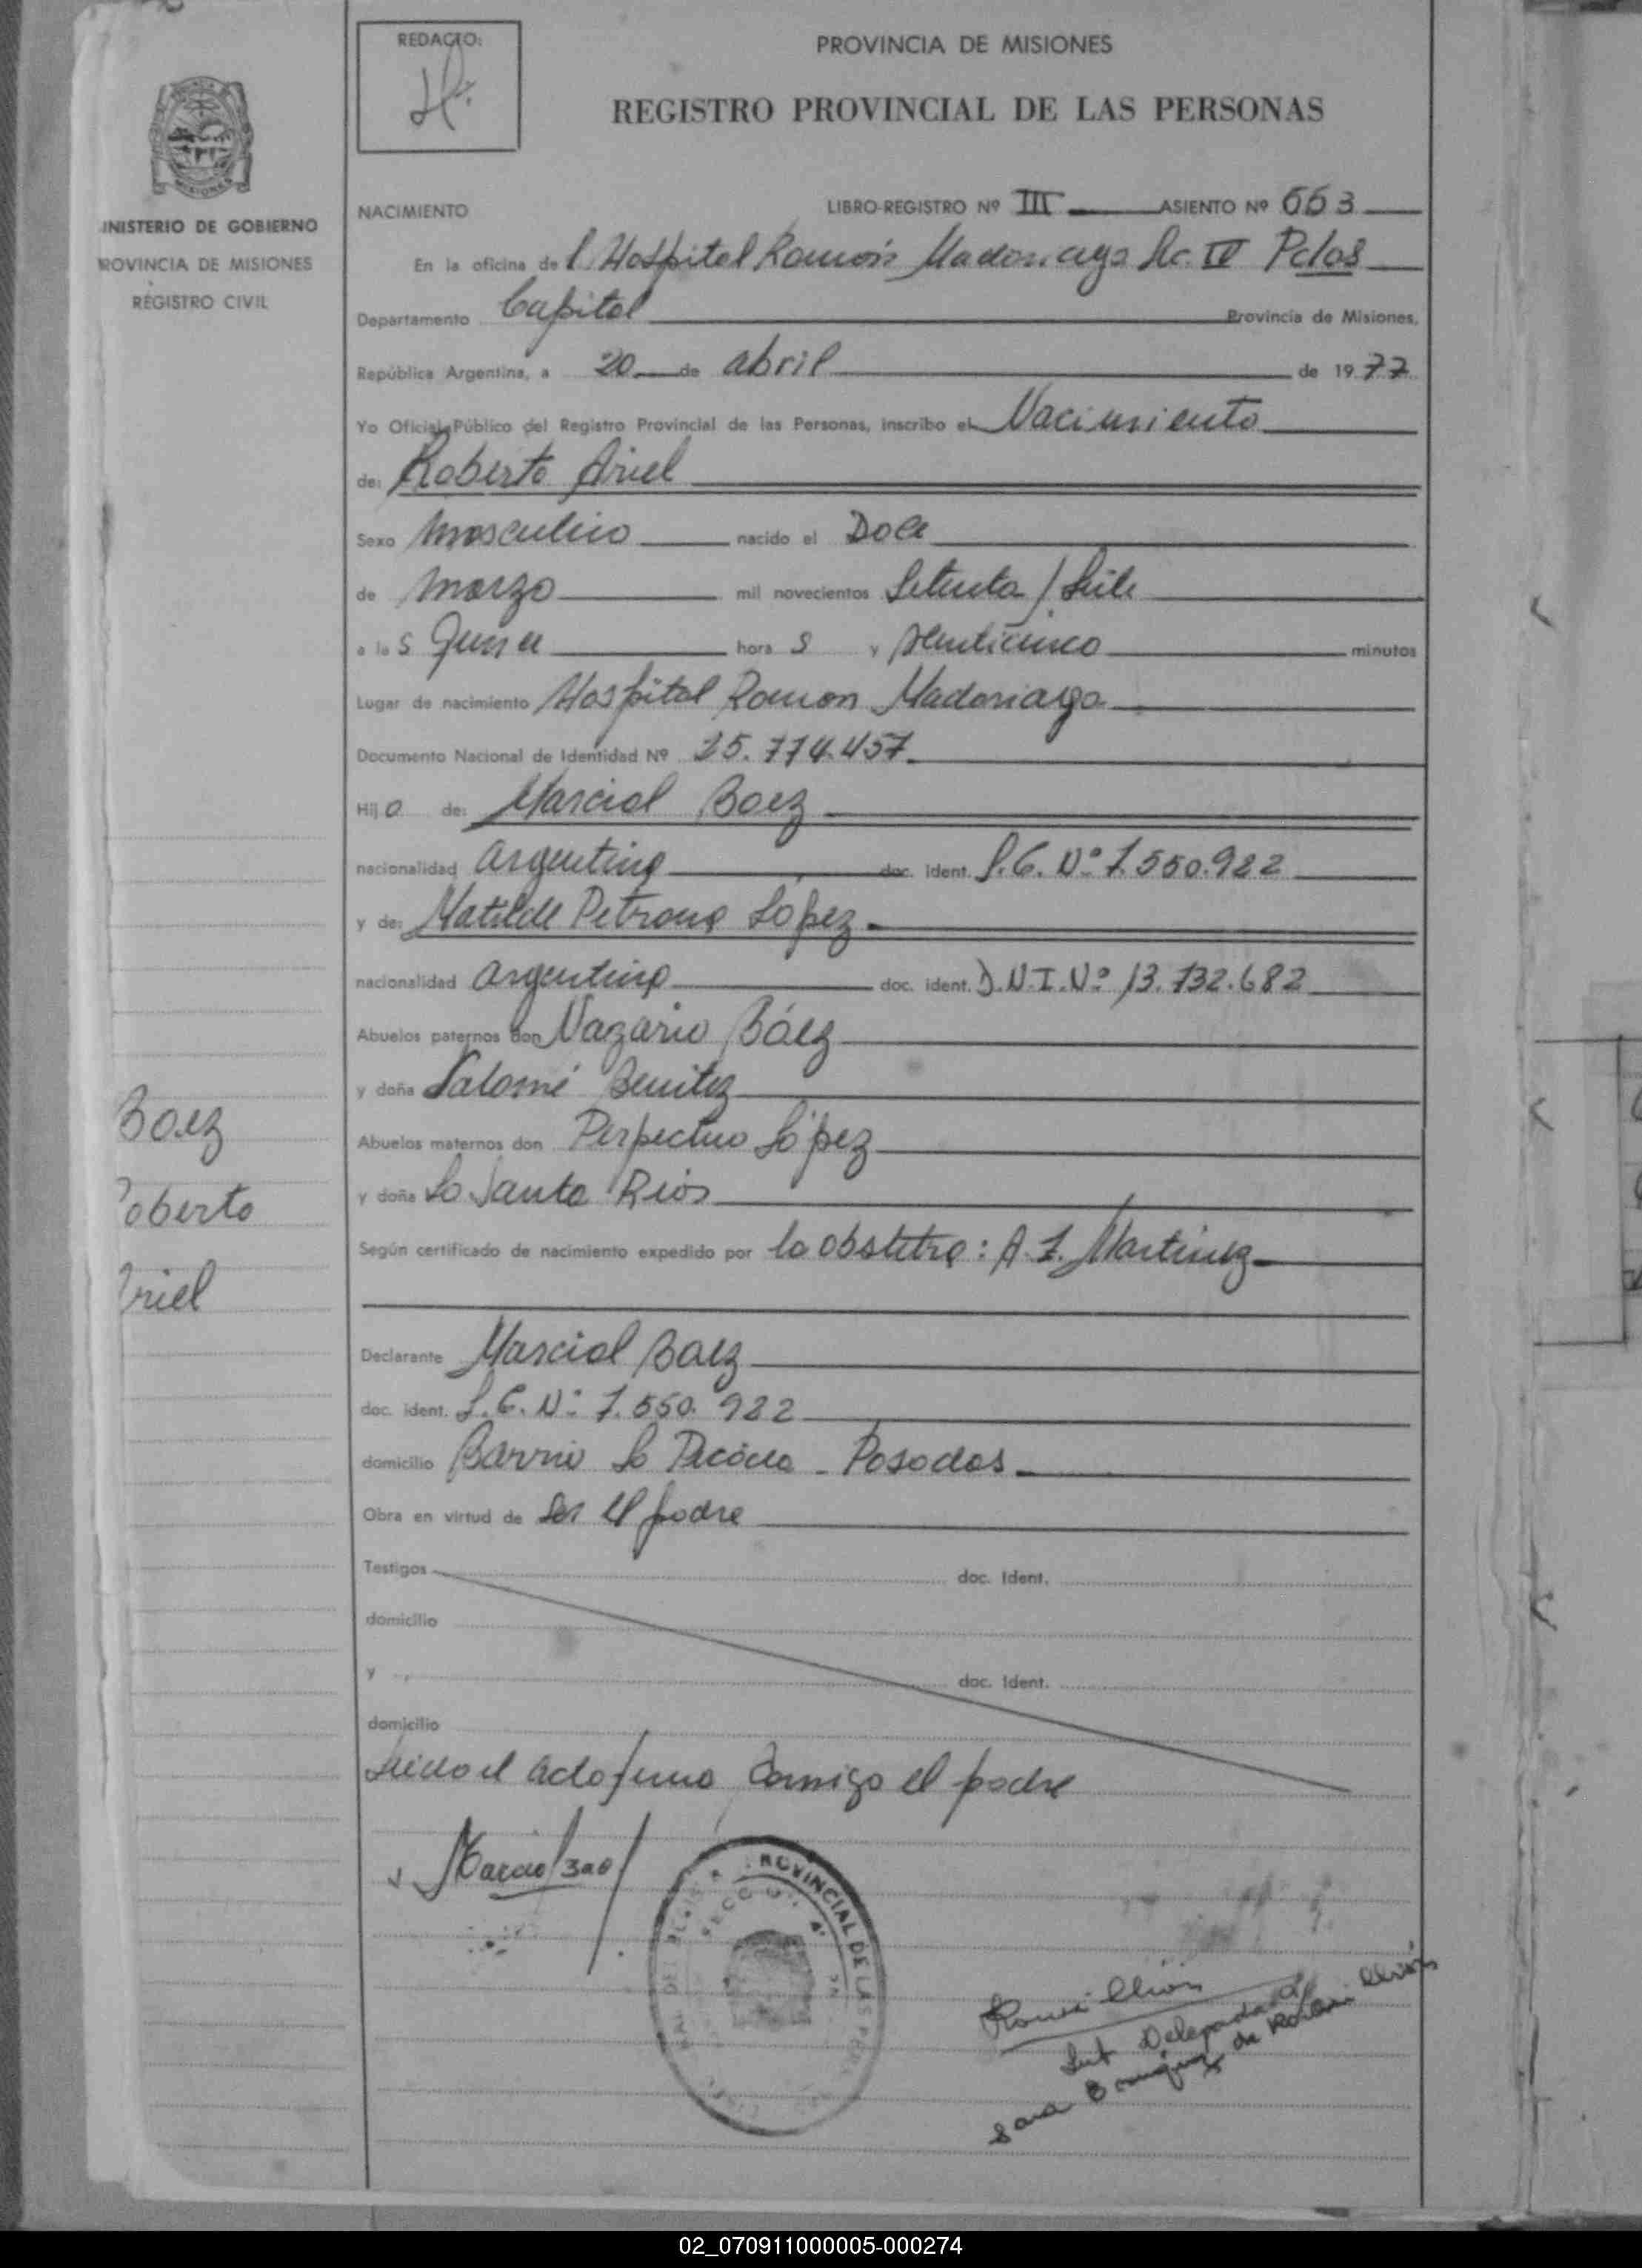 REDACTO:
PROVINCIA DE MISIONES
REGISTRO PROVINCIAL DE LAS PERSONAS
INISTERIO DE GOBIERNO
ROVINCIA DE MISIONES
REGISTRO CIVIL
NACIMIENTO LIBRO-REGISTRO Nº III ASIENTO Nº 663
En la oficina de l Hospital Ramón Madariaga Sc. IV Pdas
Departamento Capital Provincia de Misiones,
República Argentina, a 20 de abril de 1977
Yo Oficial Público del Registro Provincial de las Personas, inscribo el Nacimiento
de: Roberto Ariel
Sexo masculino nacido el Doce
de marzo mil novecientos Setenta / Siete
a las Quince horas y veinticinco minutos
Lugar de nacimiento Hospital Ramon Madariaga
Documento Nacional de Identidad Nº 25.774.457
Hijo de: Marcial Baez
nacionalidad argentina doc. ident. L.E. Nº 7.550.922
y de: Matilde Petrona López
nacionalidad argentina doc. ident. D.N.I. Nº 13.732.682
Abuelos paternos don Nazario Báez
y doña Salomé Benitez
Abuelos maternos don Perpectuo López
y doña La Santa Rios
Según certificado de nacimiento expedido por la obstetra: A. I. Martinez
Declarante Marcial Baez
doc. ident. L.E. Nº 7.550.922
domicilio Barrio La Picada - Posadas
Obra en virtud de ser el padre
Testigos doc. Ident.
domicilio
y doc. Ident.
domicilio
Leido el acto firma conmigo el padre
Baez
oberto
riel
PROVINCIAL DE LAS PER
Sub Delegada
Sara
02_070911000005-000274